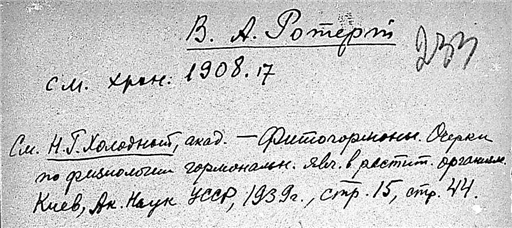 В. А. Ротерт
233
см. хрон. 1908.17
См. Н.Г. Холодный, акад. — Фитогормоны. Очерки
по физиологии гормональн. явл. в растит. организме.
Киев, Ак. Наук УССР, 1939г., стр. 15, стр. 44.